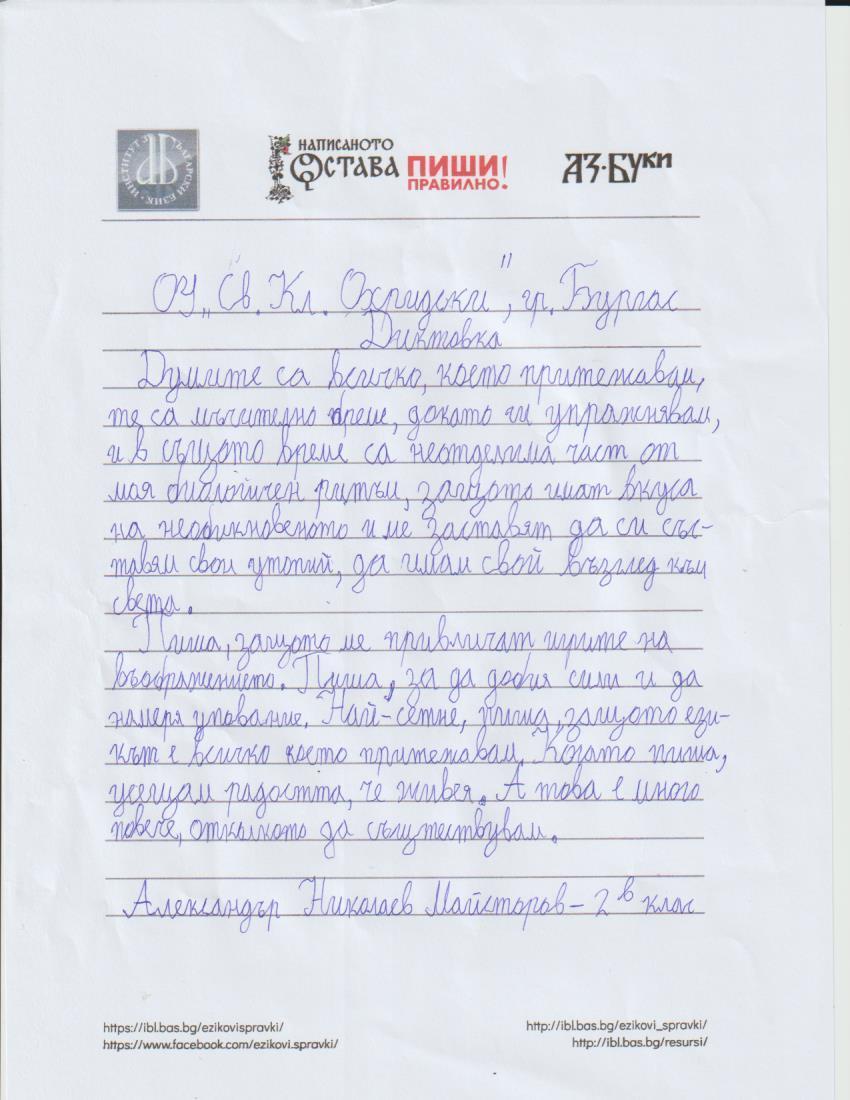 ИНСТИТУТ ЗА БЪЛГАРСКИ ЕЗИК
НАПИСАНОТО
ОСТАВА ПИШИ!
ПРАВИЛНО!
АЗ·БУКИ
ОУ „Св. Кл. Охридски", гр. Бургас
Диктовка
Думите са всичко, което притежавам,
те са мъчително бреме, докато ги упражнявам,
и в същото време са неотделима част от
моя биологичен ритъм, защото имат вкуса
на необикновеното и ме заставят да си със-
тавям свои утопий, да имам свой възглед към
света.
Пиша, защото ме привличат игрите на
въображението. Пиша, за да добия сили и да
намеря упование. Най-сетне, пиша, защото ези-
кът е всичко което притежавам. Когато пиша,
усещам радостта, че живея. А това е много
повече, отколкото да съществувам.
Александър Николаев Майсторов – 2 в клас
https://ibl.bas.bg/ezikovispravki/
http://ibl.bas.bg/ezikovi_spravki/
https://www.facebook.com/ezikovi.spravki/
http://ibl.bas.bg/resursi/